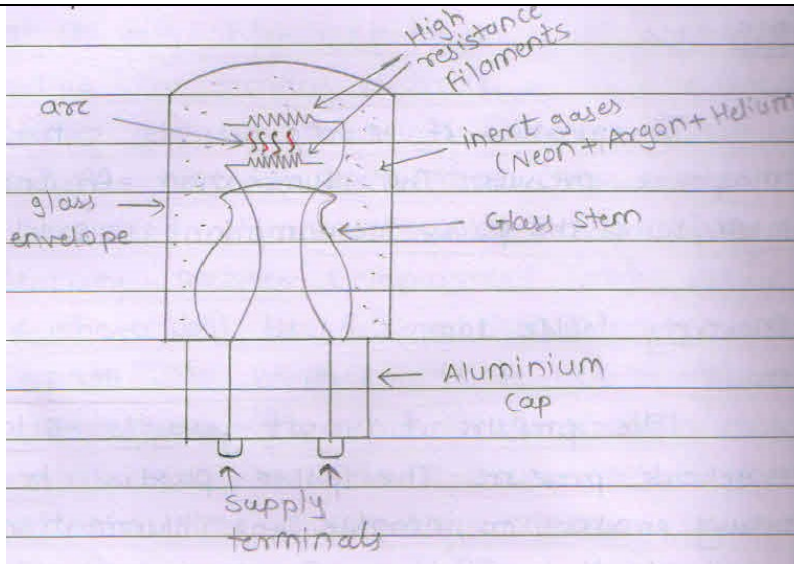 High
resistance
filaments
arc
inert gases
(Neon+Argon+Helium
glass
envelope
Glass stem
Aluminium
cap
Supply
terminals